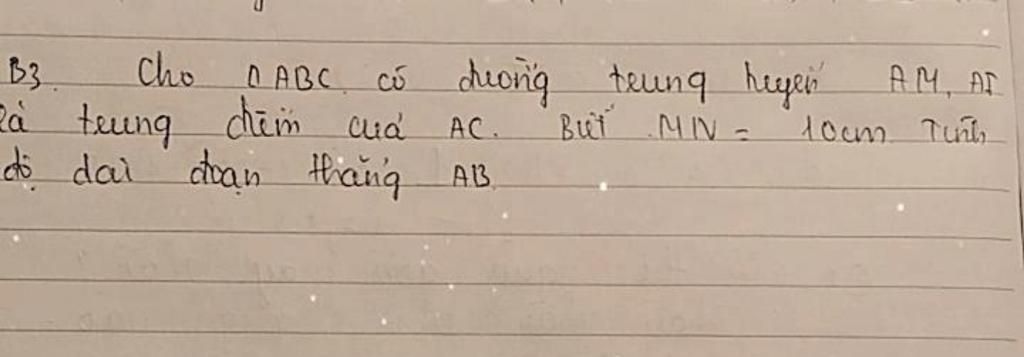 B3. Cho ΔABC có đường trung tuyến AM, AI
là trung điểm của AC. Biết MN = 10cm Tính
độ dài đoạn thẳng AB